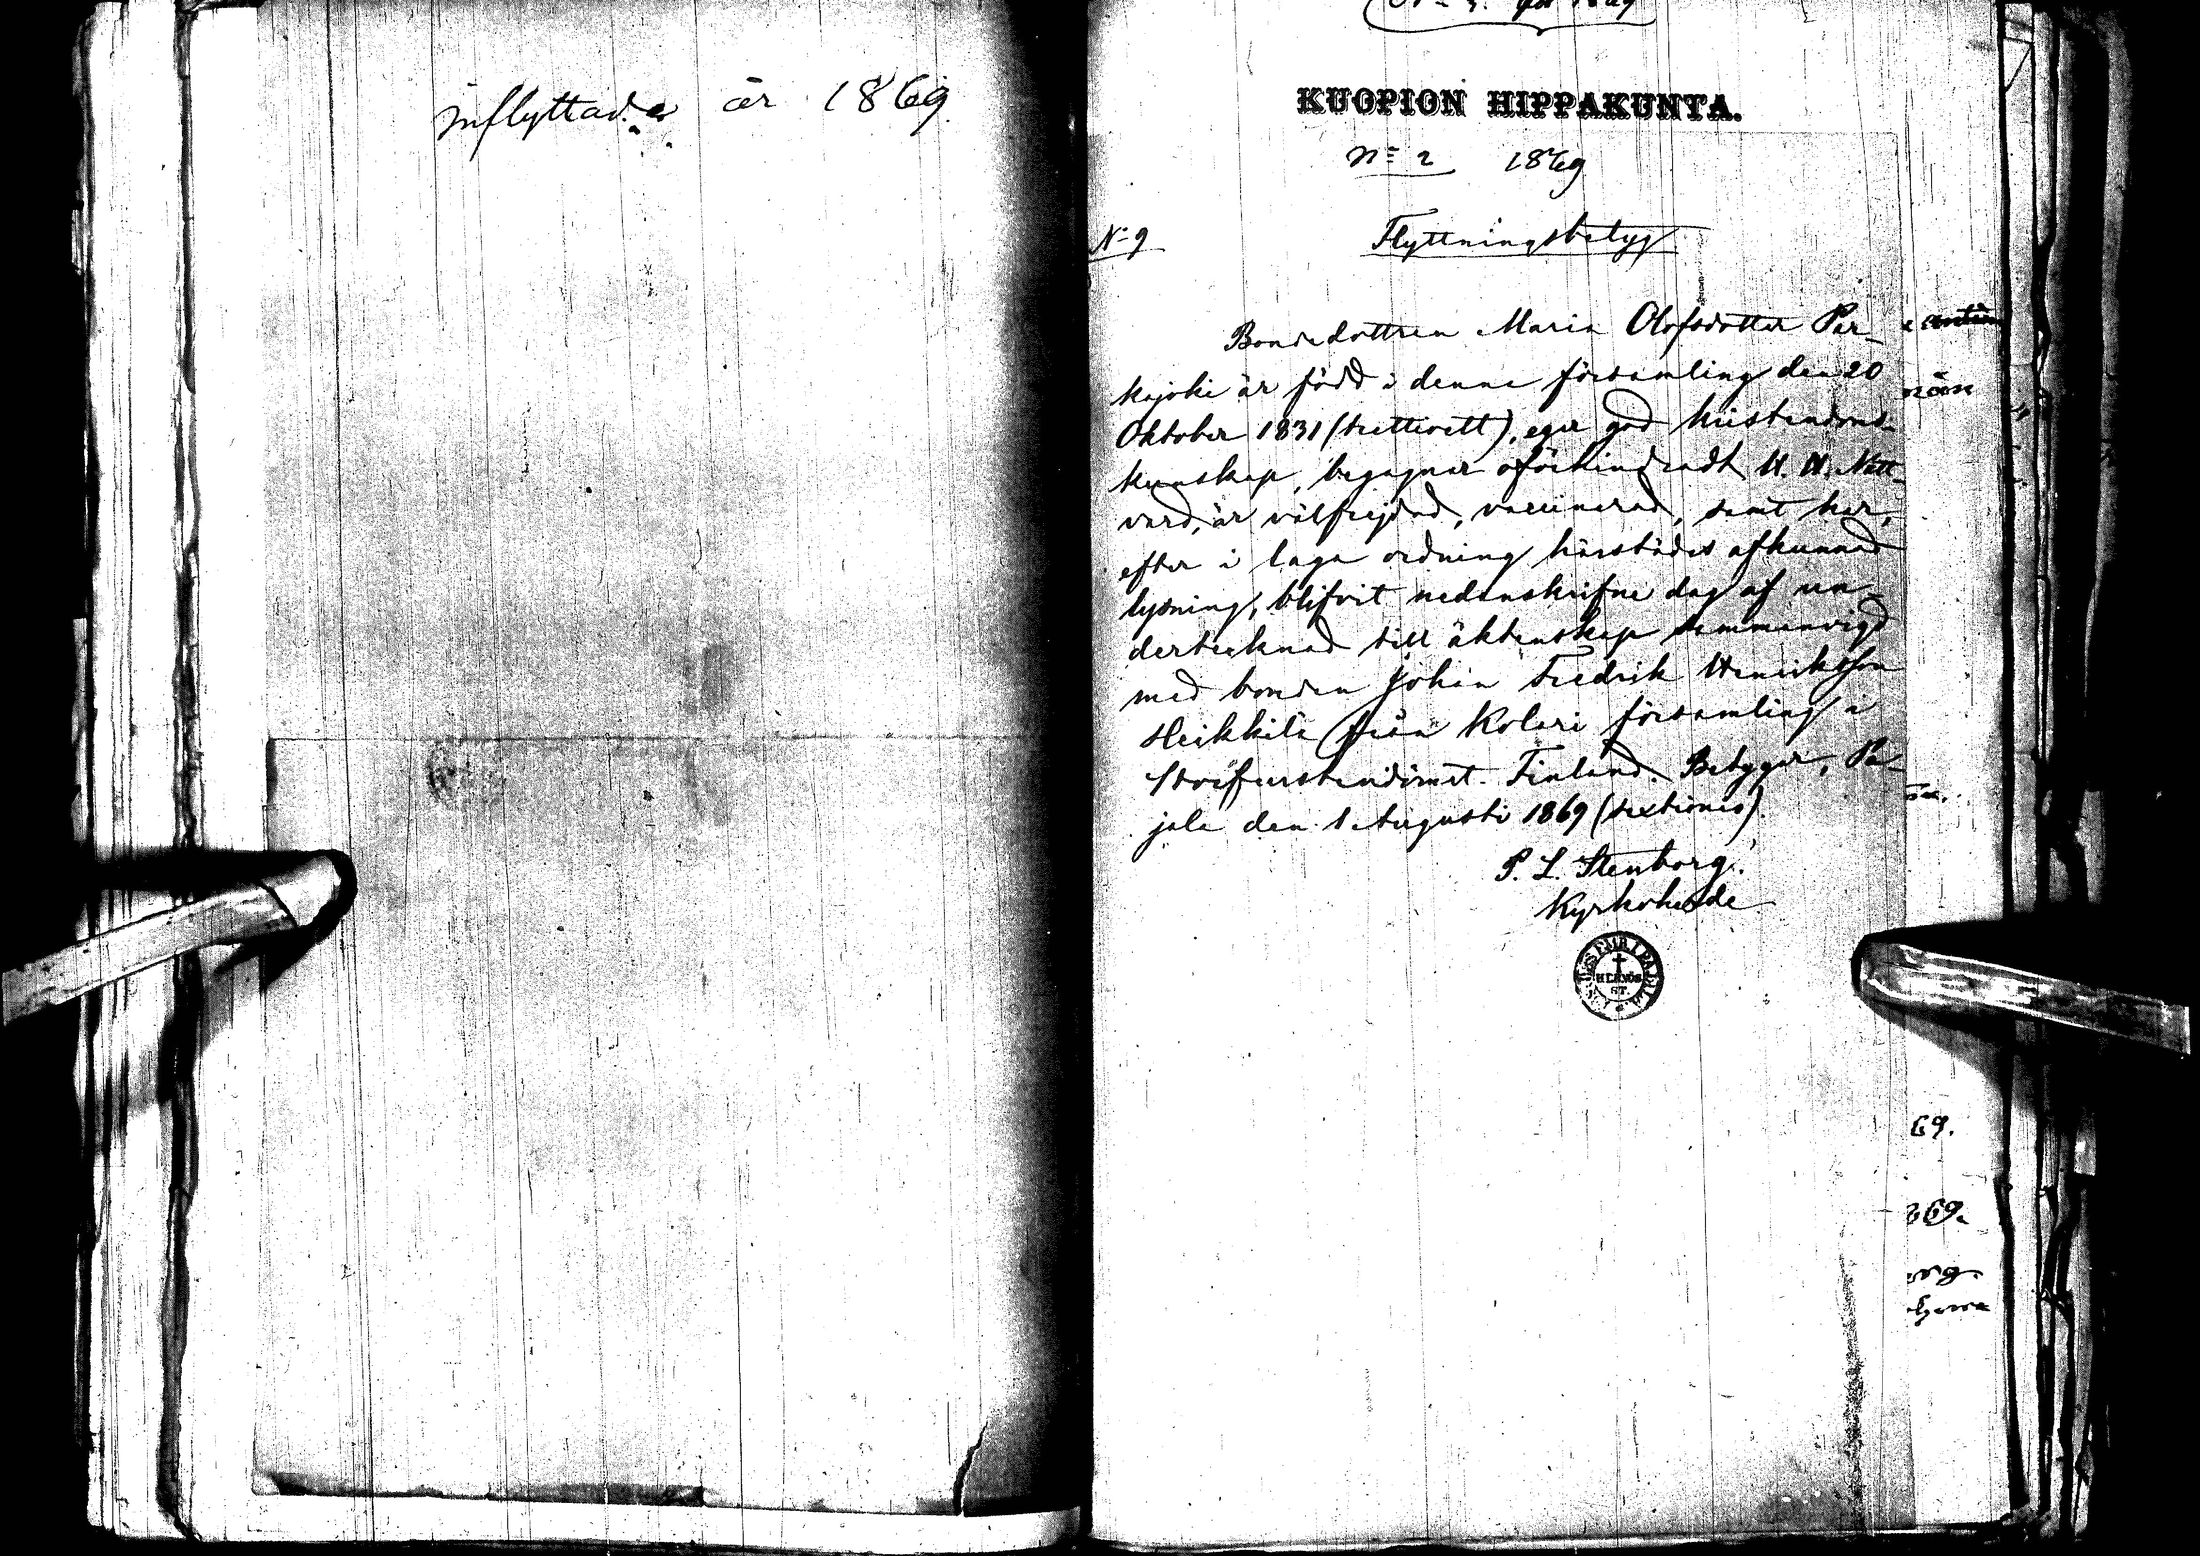 inflyttade år 1869.
KUOPION HIPPAKUNTA.
N:o 2 1869
N:o 9
Flyttningsbetyg
Bondedottren Maria Olofsdotter Par-
kajoki är född i denna församling den 20
Oktober 1831 (trettioett), eger god kristendoms-
kunskap, begagnar oförhindradt H. H. Natt-
vard, är välfrejdad, vaccinerad, samt har,
efter i laga ordning härstädes afkunnad
lysning, blifvit nedanskrifne dag af un-
dertecknad till äktenskap sammanvigd
med bonden Johan Fredrik Henriksson
Heikkilä från Kolari församling i
Storfurstendömet Finland. Betygar, Pa-
jala den 1 Augusti 1869 (sextionio).
P. L. Stenborg.
Kyrkoherde
HERNÖS
ST.
69.
869.